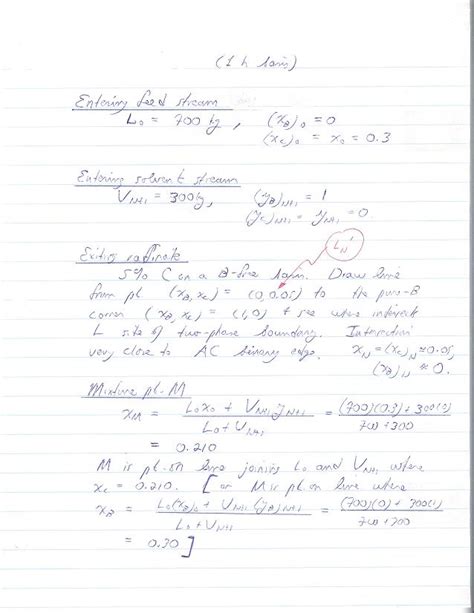 (1 h basis)
Entering feed stream
L₀ = 700 kg, (x_B)₀ = 0
(x_C)₀ = x₀ = 0.3
Entering solvent stream
V_N+1 = 300 kg, (y_B)_N+1 = 1
(y_C)_N+1 = y_N+1 = 0
L_N'
Exiting raffinate
5% C on a B-free basis. Draw line
from pt. (x_B, x_C) = (0, 0.05) to the pure-B
corner (x_B, x_C) = (1, 0) & see where intersects
L side of two-phase boundary. Intersection
very close to AC binary edge. x_N = (x_C)_N ≈ 0.05,
(x_B)_N ≈ 0.
Mixture pt. M
x_M = (L₀x₀ + V_N+1 y_N+1) / (L₀ + V_N+1) = ((700)(0.3) + 300(0)) / (700 + 300)
= 0.210
M is pt. on line joining L₀ and V_N+1 where
x_C = 0.210. [or M is pt. on line where
x_B = (L₀(x_B)₀ + V_N+1 (y_B)_N+1) / (L₀ + V_N+1) = ((700)(0) + 300(1)) / (700 + 300)
= 0.30]